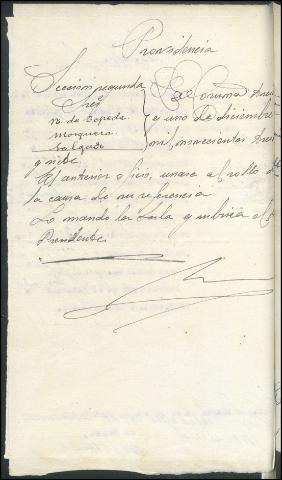 Providencia
Sección segunda
Sres
N. de Cepeda
Mosquera
Salgado
La Coruña trein
a uno de diciembre
mil novecientos trein
y siete.
El anterior oficio, unase al rollo d
la causa de su referencia
Lo mandó la Sala y rubrica el S
Presidente.